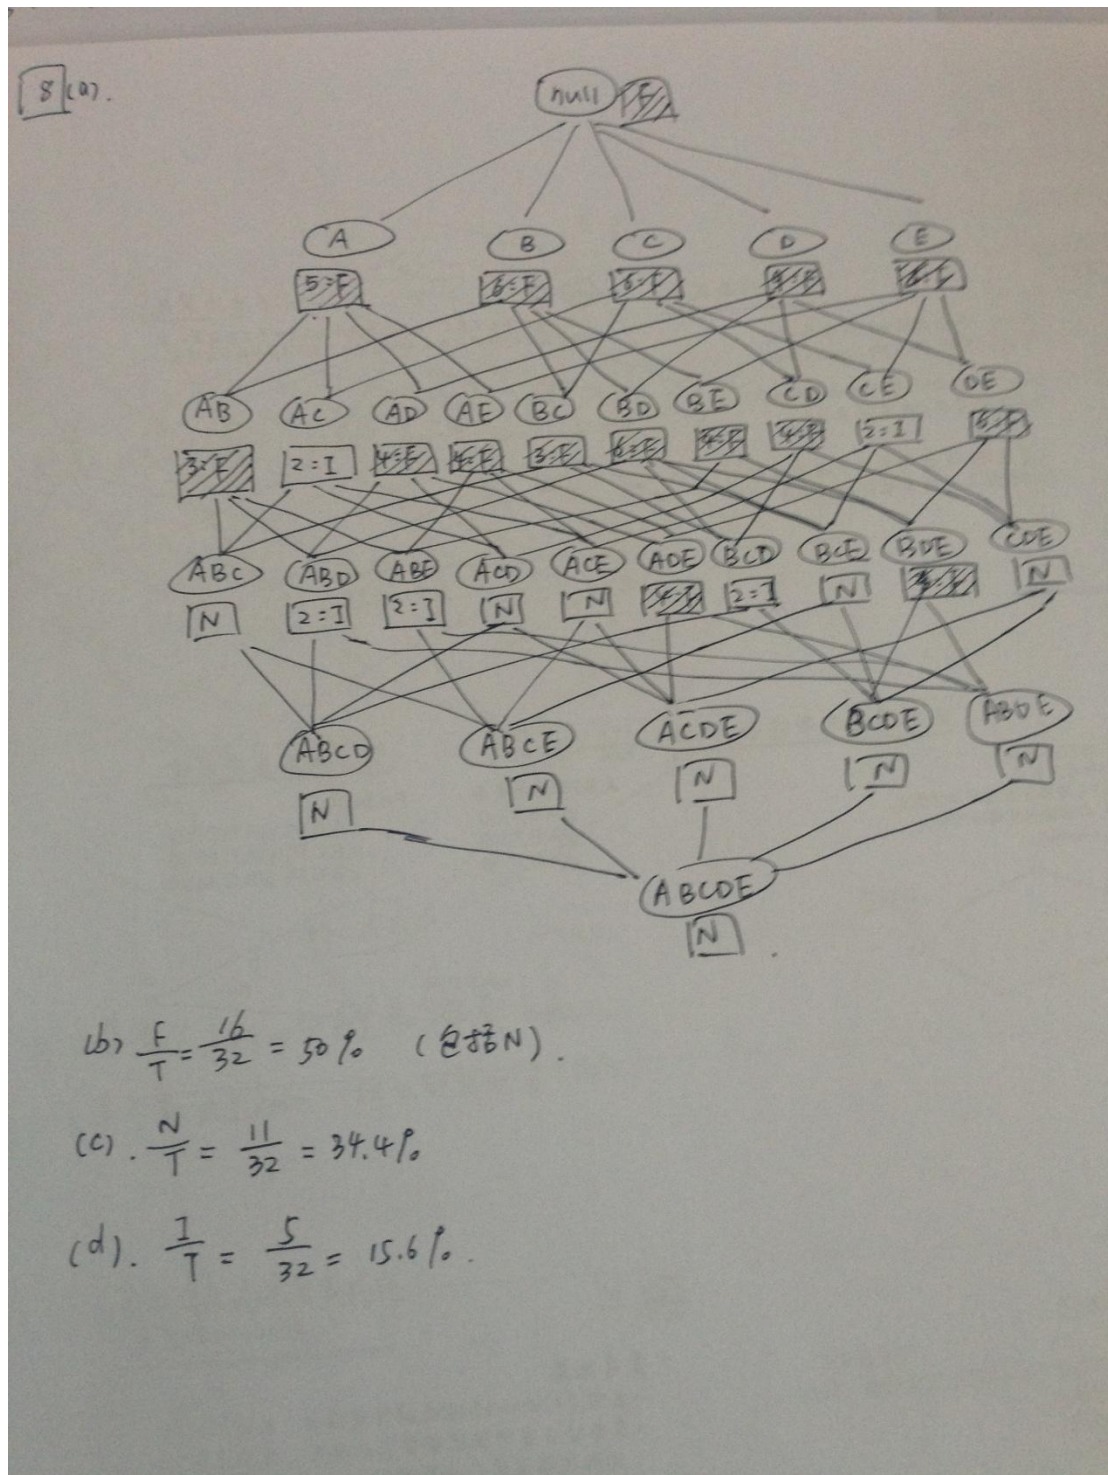 8 (a).
null F
A B C D E
5:F
AB AC AD AE BC BD BE CD CE DE
3:F 2:I 4:F 4:F 3:F 6:F 4:F 4:F 2:I 6:F
ABC ABD ABE ACD ACE ADE BCD BCE BDE CDE
N 2:I 2:I N N 4:F 2:I N N
ABCD ABCE ACDE BCDE ABDE
N N N N N
ABCDE
N
(b) F/T = 16/32 = 50% (包括N).
(c). N/T = 11/32 = 34.4%
(d). I/T = 5/32 = 15.6%.